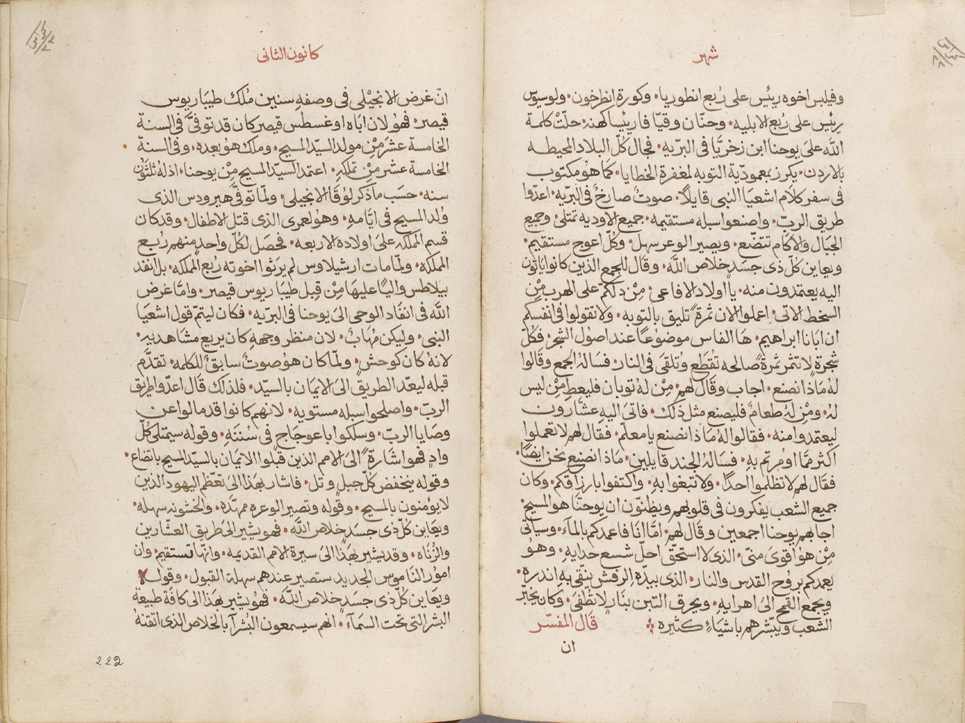 شهر
وفيلبس اخوه رئيس على رُبع انطوريا٠ وكورة انطرخون٠ ولوسيوس
رئيس على رُبع الابليه٠ وحنّان وقيّافا رئيسا كهنة٠ حلّت كلمة
اللّه على يوحنا ابن زخريّا فى البرّيه٠ فجال كُلّ البلاد المحيطه
بالاردن٠ يكرز بعموديّة التوبه لمغفرة الخطايا٠ كما هو مكتوب
فى سفر كلام اشعيا النبى قايلاً٠ صوتٌ صارخٌ فى البرّيه٠ اعدّوا
طريق الربّ٠ واصنعوا سبله مستقيمه٠ جميع الاوديه تمتلى٠ وجميع
الجبال والآكام تتضّع٠ ويصير الوعر سهل٠ وكُلّ اعوج مستقيم٠
ويعاين كلّ ذى جسَد خلاص اللّه٠ وقال للجمع الذين كانوا ياتون
اليه يعتمدون منه٠ يا اولاد الافاعى٠ مِنْ دلّكم على الهرب مِنْ
السخط الآتى٠ اعملوا الان ثمرةً تليق بالتوبه٠ ولا تقولوا فى انفسكم
ان ابانا ابراهيم٠ ها الفاس موضوعًا عند اصول الشجر٠ فكُلّ
شجرةٍ لا تثمر ثمرةً صالحه تُقطَع وتُلقى فى النار٠ فسالهُ الجمع وقالوا
لهُ ماذا نصنع٠ اجاب وقال لهم٠ مِنْ لهُ ثوبان فليعطِ مِنْ ليس
لهُ٠ ومِنْ لهُ طعامٌ فليصنع مثل ذلك٠ فاتى اليهِ عشّارون
ليعتمدوا منه٠ فقالوا لهُ ماذا نصنع يا معلّم٠ فقال لهم لا تعملوا
اكثر ممّا اومرتم به٠ فسالهُ الجند قايلين٠ ماذا نصنع نحن ايضًا٠
فقال لهم لا تظلموا احدًا٠ ولا تبغوا به٠ واكتفوا بارزاقكم٠ وكان
جميع الشعب يفكرون فى قلوبهم ويظنّون ان يوحنّا هو المسيح٠
اجابهم يوحنا اجمعين وقال لهم٠ امّا انا فاعمدكم بالمآء٠ وسياتى
مِنْ هو اقوى منّى٠ الذى لا استحقّ احلّ شسع حدايهِ٠ وهو
يعمدكم بروح القدس والنار٠ الذى بيدهِ الرفش ينقّى بهِ اندره٠
ويجمع القمح الى اهرايهِ٠ ويحرق التبن بنارٍ لا تطفى٠ وكان يخبّر
الشعب ويبشّرهم باشيآءٍ كثيره قال المفسّر
ان
كانون الثانى
انّ غرض الانجيلى فى وصفهِ سنين مُلك طيباريوس
قيصر٠ فهو لان اباه اوغسطس قيصر كان قد توفىَّ فى السنة
الخامسة عشر مِنْ مولد السيّد المسيح٠ وملك هو بعده٠ وفى السنة
الخامسة عشر مِنْ تملّكهِ٠ اعتمد السيّد المسيح مِنْ يوحنا٠ اذ لهُ ثلثون
سنه٠ حسَب ما ذكر لوُقا الانجيلى٠ ولمّا توفّى هيرودس الذى
وُلد المسيح فى ايّامهِ٠ وهو لعمرى الذى قتل الاطفال٠ وقد كان
قسم المملكه على اولاده الاربعه٠ فحصَل لكُلّ واحدٍ منهم ربع
المملكه٠ ولمّا مات ارشيلاوس لم يرثوا اخوته رُبع المملكه٠ بل انفد
بيلاطس واليًا عليها مِنْ قِبل طيباريوس قيصر٠ وامّا غرض
اللّه فى انفاد الوحى الى يوحنا فى البرّيه٠ فكان ليتمّ قول اشعيا
النبى٠ وليكن مُهابٌ٠ لان منظر وجهه كان يريع مشاهديه٠
لانهُ كان كوحش٠ ولمّا كان هو صوتٌ سابقٌ للكلمه٠ تقدّم
قبله ليعدّ الطريق الى الايمان بالسيّد٠ فلذلك قال اعدّوا طريق
الربّ٠ واصلحوا سبله مستويه٠ لانهم كانوا قد مالوا عن
وصايا الربّ٠ وسلكوا باعوجاج فى سُننه٠ وقوله سيمتلى كُلّ
وادٍ فهو اشارةً الى الامم الذين قبلوا الايمان بالسيّد المسيح باتضاع٠
وقوله ينخفض كلّ جبلٍ وتل٠ فاشار بهذا الى تعظّم اليهود الذين
لا يؤمنون بالمسيح٠ وقوله وتصير الوعره ممهّدة٠ والخشونه سهله٠
ويعاين كلّ ذى جسدٍ خلاص اللّه٠ فهو يشير الى طريق العشّارين
والزناه٠ وقد يشير بهذا الى سيرة الامم القديمه٠ وانّها تستقيم وان
امور الناموس الجديد ستصير عندهم سهلة القبول٠ وقوله
ويعاين كُلّ ذى جسَدٍ خلاص اللّه٠ فهو يشير بهذا الى كافّة طبيعة
البشر التى تحت السمآء٠ انهم سيسمعون البُشرآ بالخلاص الذى اتقنهُ
222